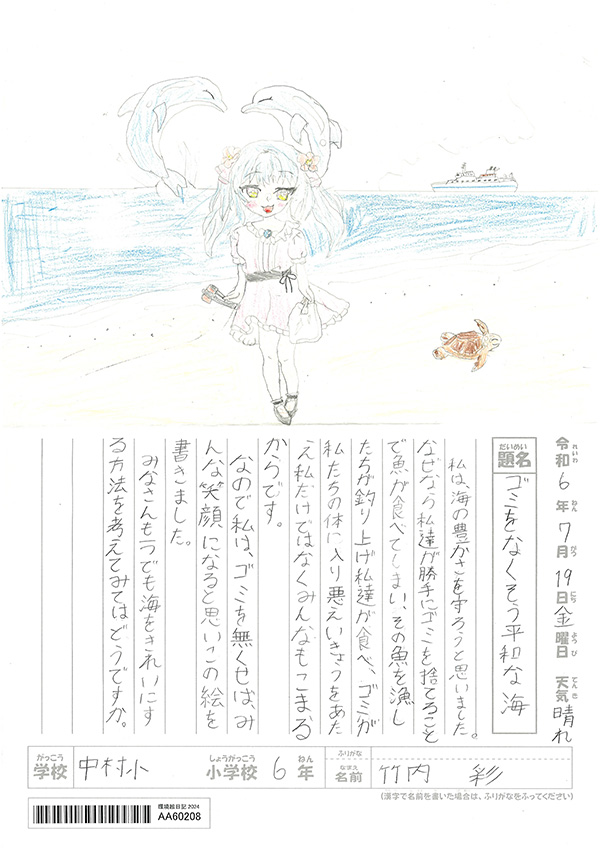 令和6年7月19日金曜日 天気 晴れ
れいわ ねん がつ にち ようび てんき
だいめい
題名 ゴミをなくそう平和な海
私は、海の豊かさを守ろうと思いました。
なぜなら私達が勝手にゴミを捨てること
で魚が食べてしまい、その魚を漁し
たちが釣り上げ私達が食べ、ゴミが
私たちの体に入り悪えいきょうをあた
え私だけではなくみんなもこまる
からです。
なので私は、ゴミを無くせば、み
んな笑顔になると思いこの絵を
書きました。
みなさんも一つでも海をきれいにす
る方法を考えてみてはどうですか。
がっこう しょうがっこう ねん ふりがな なまえ
学校 中村小 小学校 6年 名前 竹内 彩
(漢字で名前を書いた場合は、ふりがなをふってください)
環境絵日記 2024
AA60208